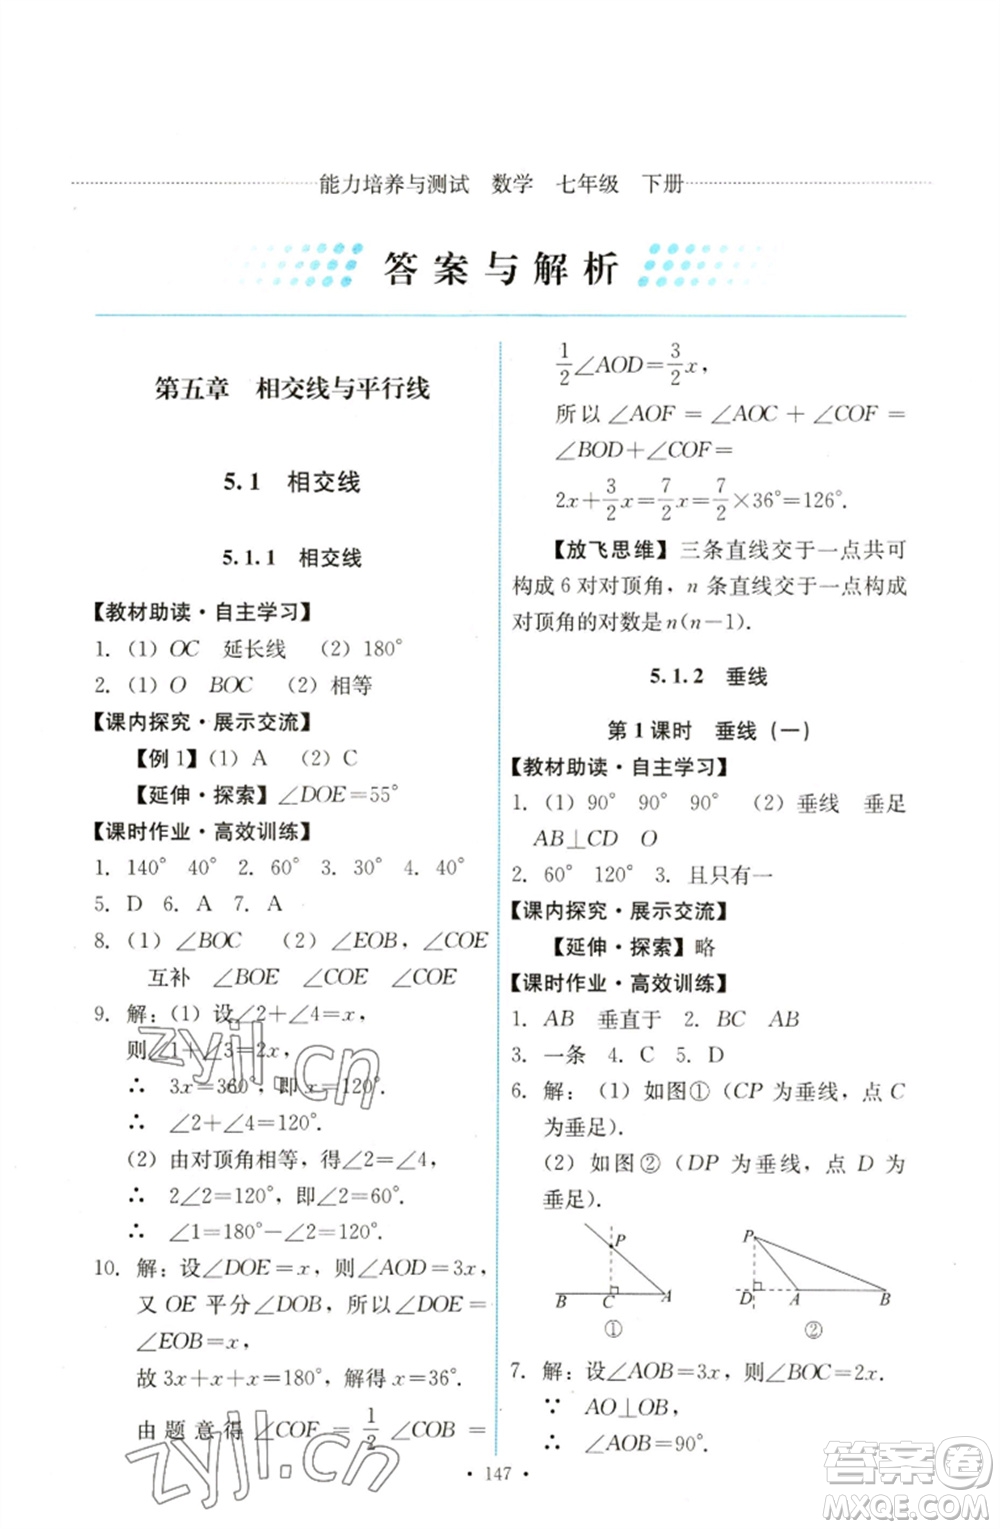 能力培养与测试 数学 七年级 下册
答案与解析
第五章 相交线与平行线
5.1 相交线
5.1.1 相交线
【教材助读·自主学习】
1. (1) OC 延长线 (2) 180°
2. (1) O BOC (2) 相等
【课内探究·展示交流】
【例1】(1) A (2) C
【延伸·探索】∠DOE=55°
【课时作业·高效训练】
1. 140° 40° 2. 60° 3. 30° 4. 40°
5. D 6. A 7. A
8. (1) ∠BOC (2) ∠EOB, ∠COE
互补 ∠BOE ∠COE ∠COE
9. 解:(1) 设∠2+∠4=x,
则∠1+∠3=2x,
∴ 3x=360°,即x=120°.
∴ ∠2+∠4=120°.
(2) 由对顶角相等,得∠2=∠4,
∴ 2∠2=120°,即∠2=60°.
∴ ∠1=180°-∠2=120°.
10. 解:设∠DOE=x,则∠AOD=3x,
又 OE 平分∠DOB,所以∠DOE=
∠EOB=x,
故 3x+x+x=180°,解得 x=36°.
由题意得∠COF=1/2∠COB=
1/2∠AOD=3/2x,
所以∠AOF=∠AOC+∠COF=
∠BOD+∠COF=
2x+3/2x=7/2x=7/2×36°=126°.
【放飞思维】三条直线交于一点共可
构成6对对顶角,n条直线交于一点构成
对顶角的对数是n(n-1).
5.1.2 垂线
第1课时 垂线(一)
【教材助读·自主学习】
1. (1) 90° 90° 90° (2) 垂线 垂足
AB⊥CD O
2. 60° 120° 3. 且只有一
【课内探究·展示交流】
【延伸·探索】略
【课时作业·高效训练】
1. AB 垂直于 2. BC AB
3. 一条 4. C 5. D
6. 解:(1) 如图①(CP 为垂线,点 C
为垂足).
(2) 如图②(DP 为垂线,点 D 为
垂足).
P
B C A
①
P
D A B
②
7. 解:设∠AOB=3x,则∠BOC=2x.
∵ AO⊥OB,
∴ ∠AOB=90°.
• 147 •
zyjl.cn
zyjl.cn
答案圈
MXQE.COM